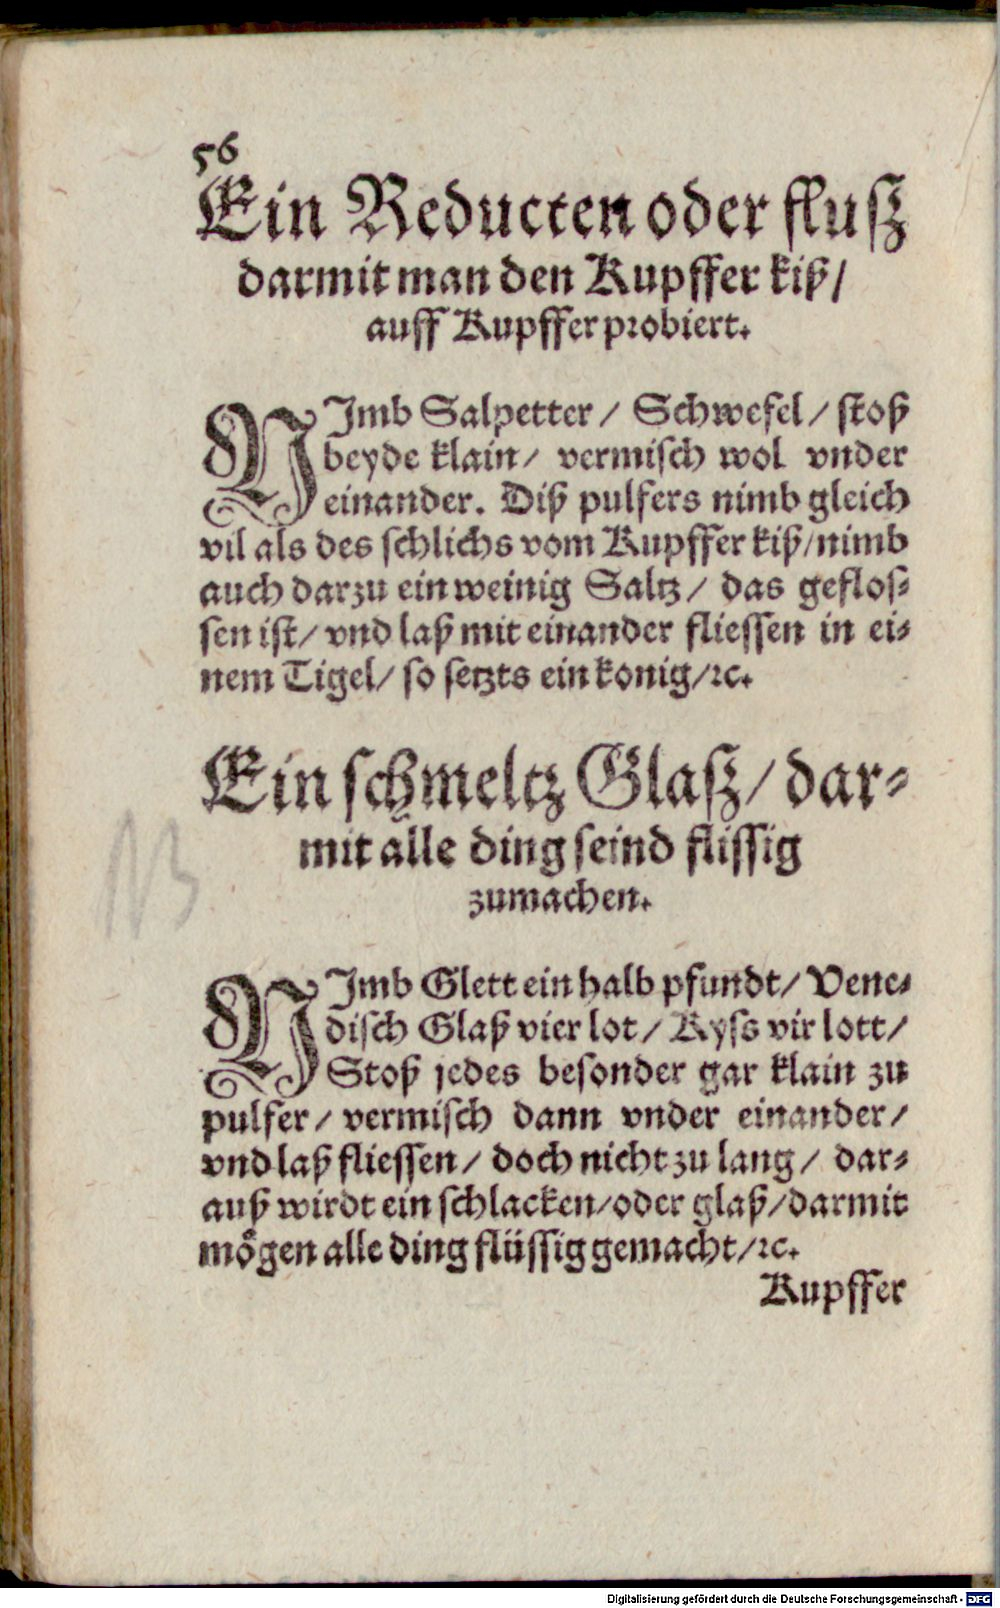 56
Ein Reducten oder fluß
darmit man den Kupffer kiß/
auff Kupffer probiert.
NImb Salpetter / Schwefel / stoß
beyde klain / vermisch wol vnder
einander. Diß pulfers nimb gleich
vil als des schlichs vom Kupffer kiß / nimb
auch darzu ein weinig Saltz / das geflos⸗
sen ist / vnd laß mit einander fliessen in ei⸗
nem Tigel / so setzts ein konig / ꝛc.
Ein schmeltz Glaß / dar⸗
mit alle ding seind flissig
zumachen.
NB
NImb Glett ein halb pfundt / Vene⸗
disch Glaß vier lot / Kyss vir lott /
Stoß jedes besonder gar klain zu
pulfer / vermisch dann vnder einander /
vnd laß fliessen / doch nicht zu lang / dar⸗
auß wirdt ein schlacken / oder glaß / darmit
mögen alle ding flüssig gemacht / ꝛc.
Kupffer
Digitalisierung gefördert durch die Deutsche Forschungsgemeinschaft - DFG